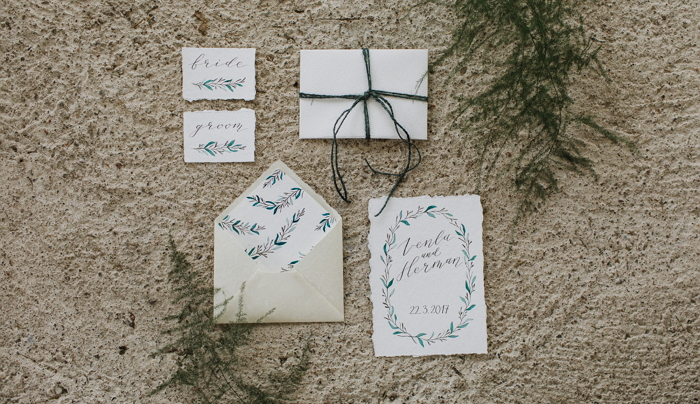 bride
groom
Venlu
and
Herman
22.3.2017